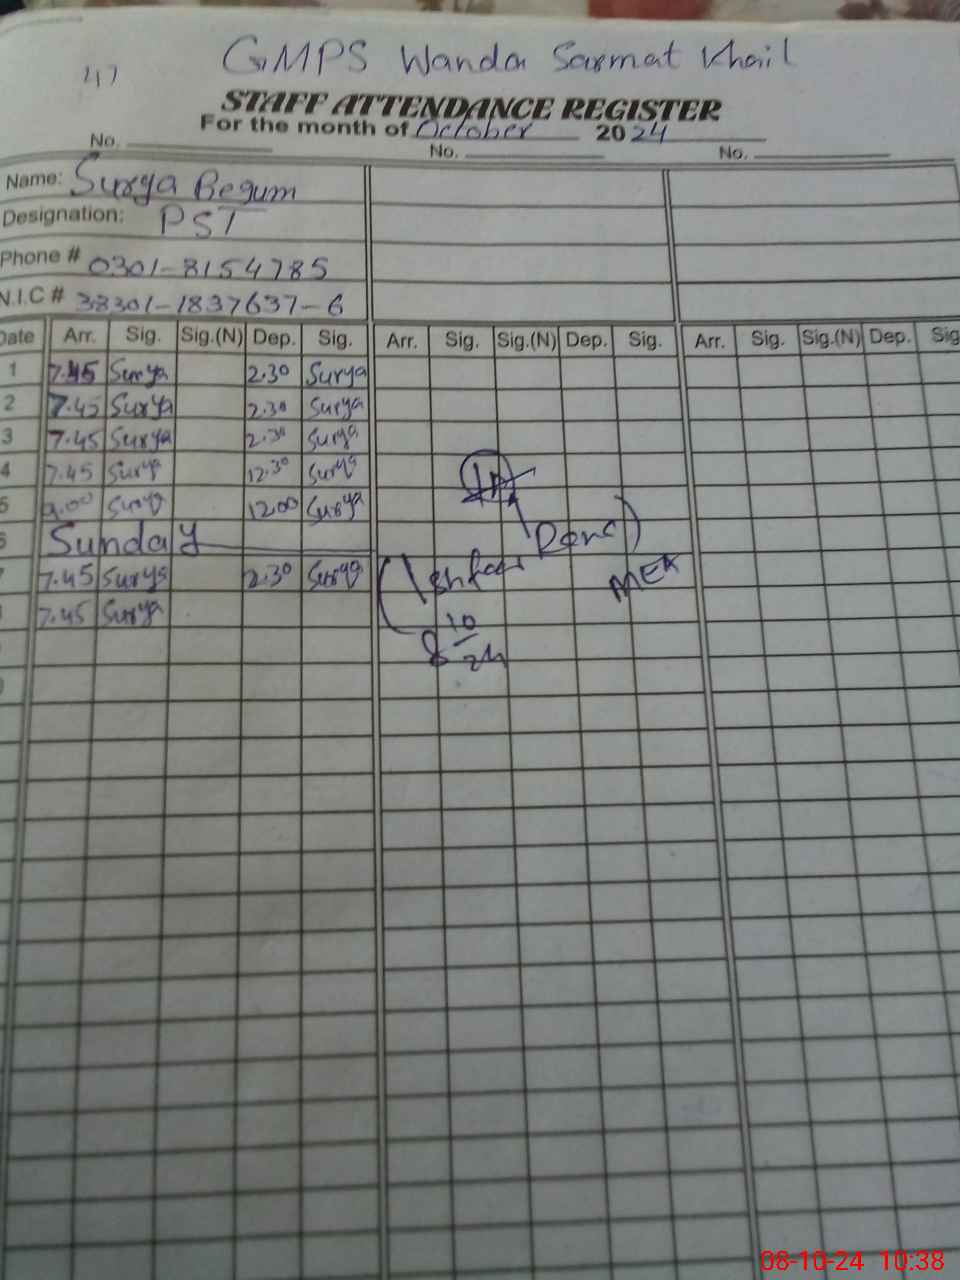 GMPS Wanda Sarmat Khail
47
STAFF ATTENDANCE REGISTER
For the month of October 2024
No. No. No.
Name: Surya Begum
Designation: PST
Phone # 0301-8154785
N.I.C # 38301-1837637-6
Date Arr. Sig. Sig.(N) Dep. Sig. Arr. Sig. Sig.(N) Dep. Sig. Arr. Sig. Sig.(N) Dep. Sig
1 7.45 Surya 2.30 Surya
2 7.45 Surya 2.30 Surya
3 7.45 Surya 2.30 Surya
4 7.45 Surya 12.30 Surya
5 9.00 Surya 12.00 Surya
6 Sunday
7 7.45 Surya 2.30 Surya
7.45 Surya
MEA
8 10/24
08-10-24 10:38